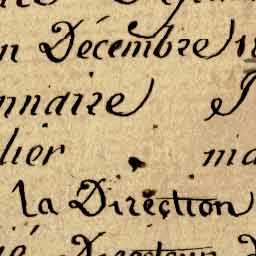 n Décembre 1
nnaire
lier ma
la Direction
ié Directeur